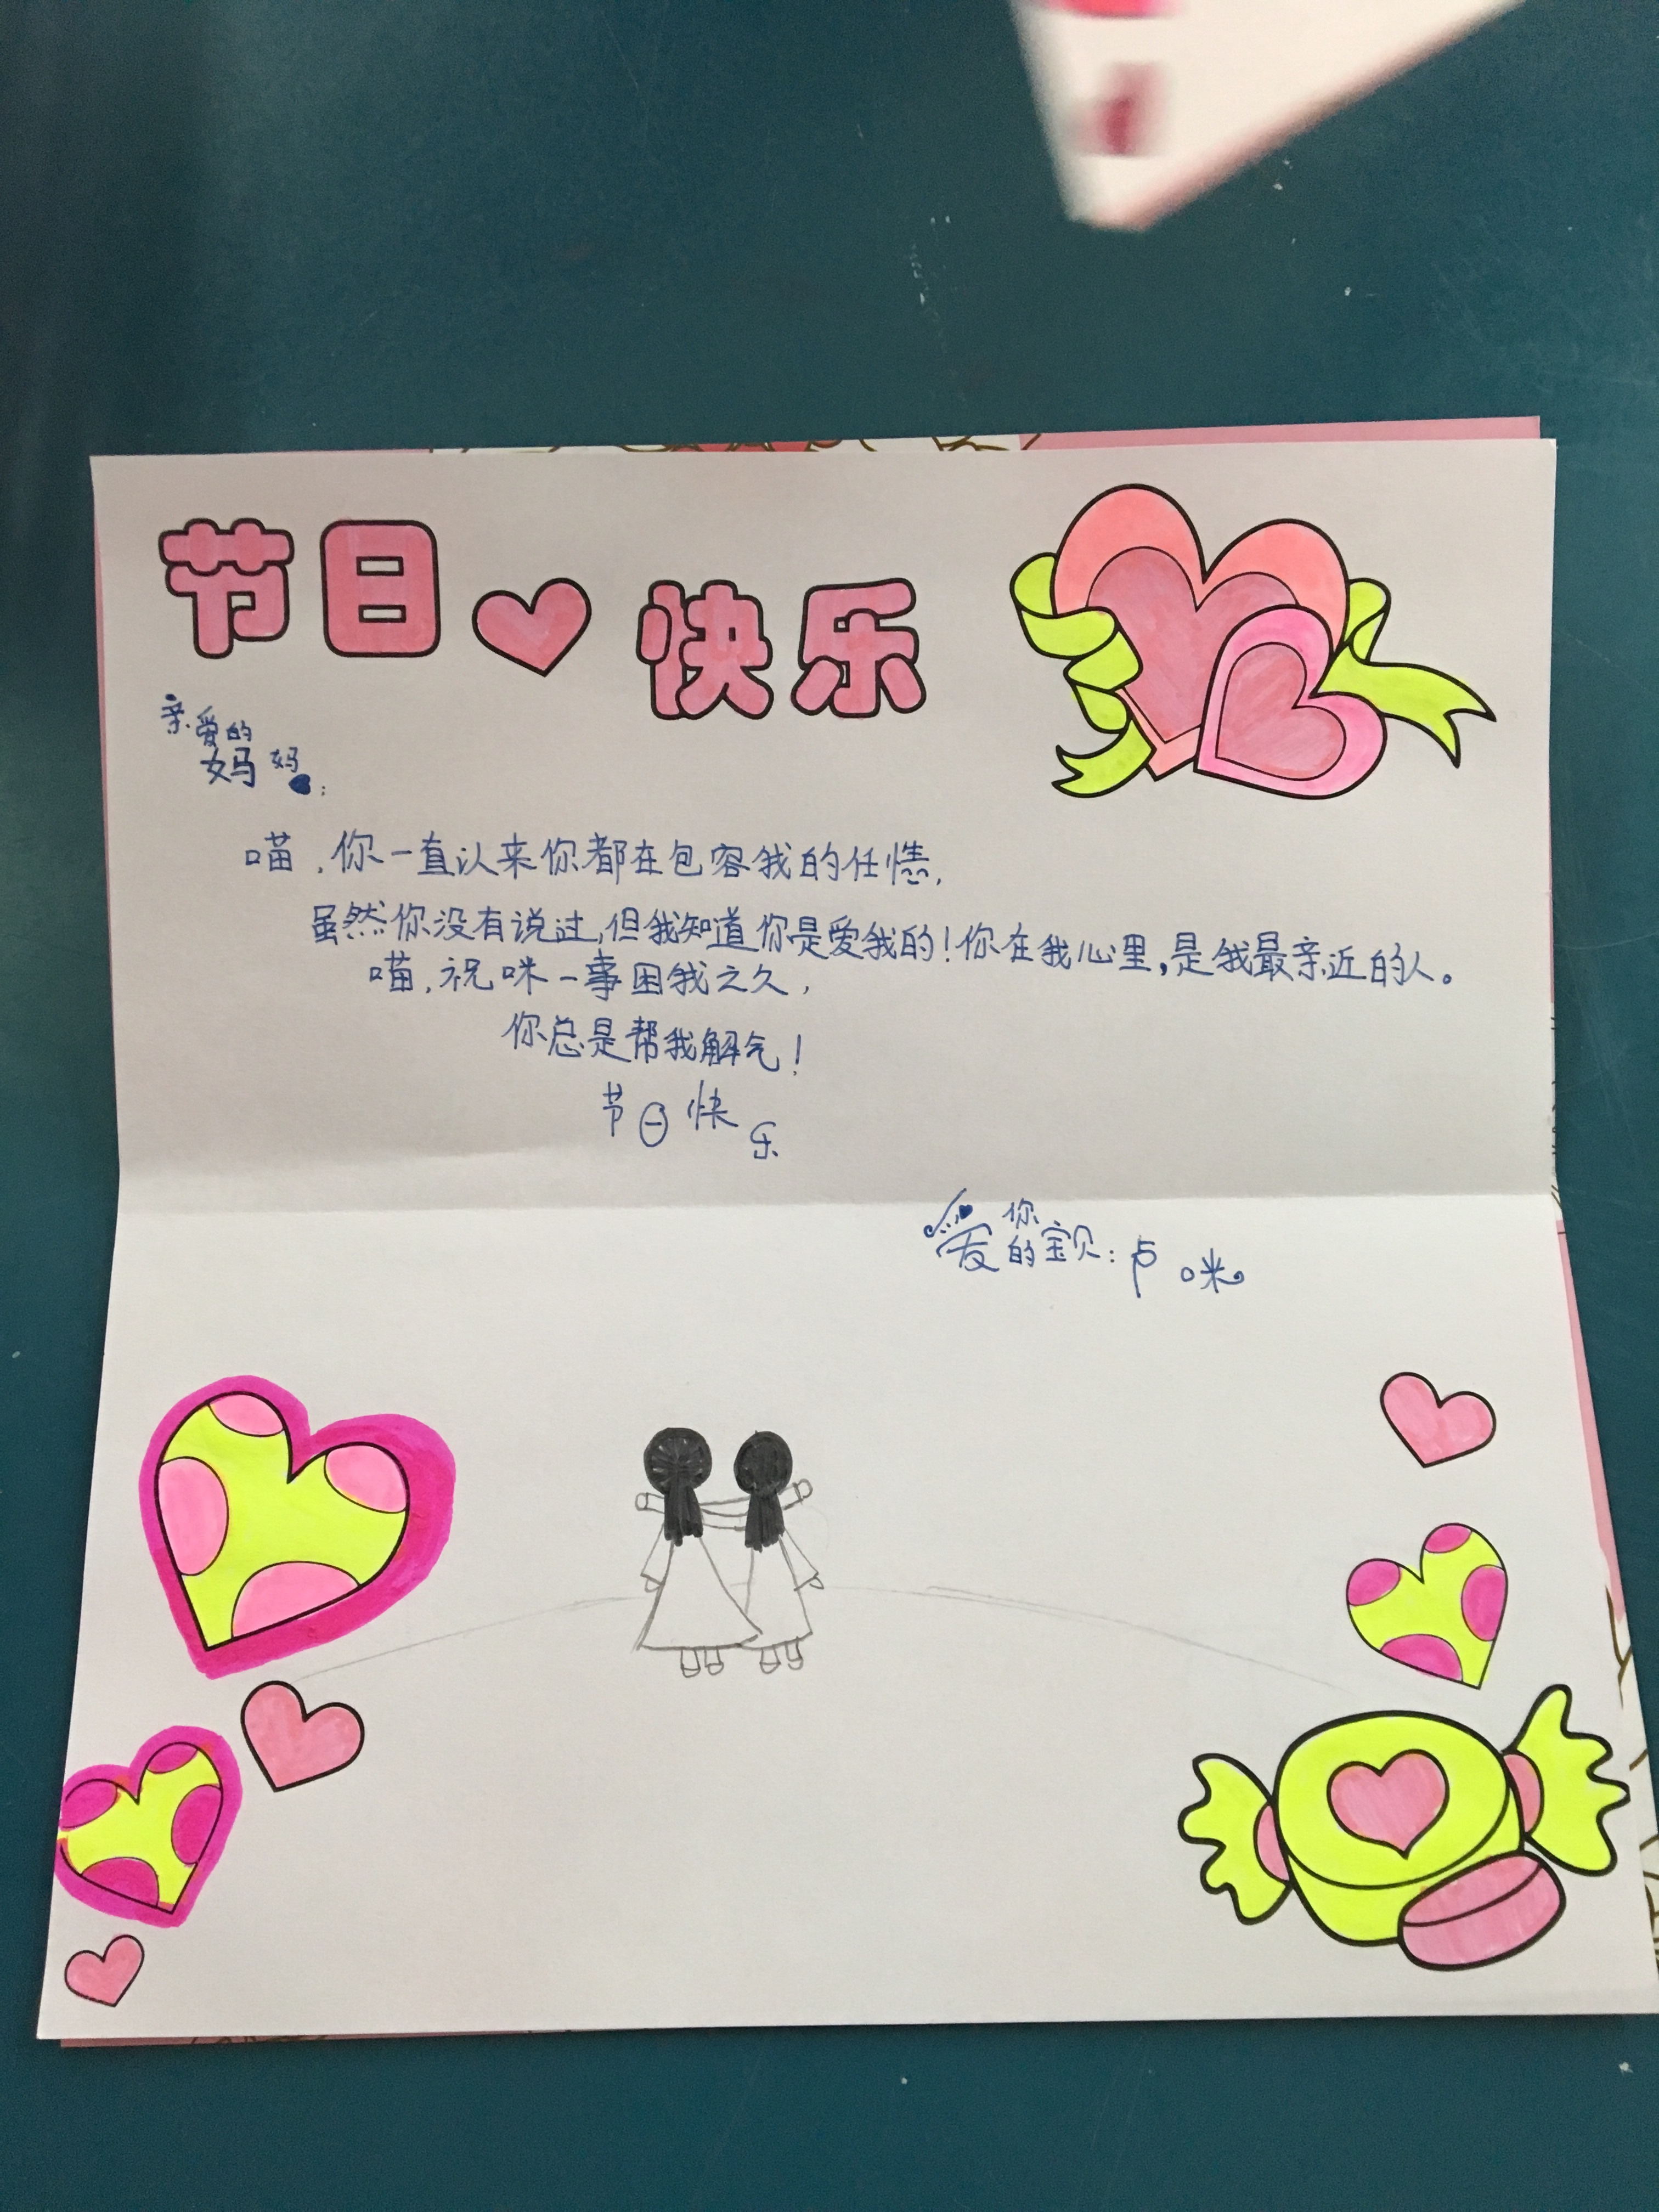 节日快乐
亲爱的
妈妈:
喵,你一直以来你都在包容我的任
虽然你没有说过,但我知道你是爱我的!你在我心里,是我最亲近的人。
喵,祝咪一事困我之久,
你总是帮我解气!
节日快乐
爱你的宝贝:卢咪